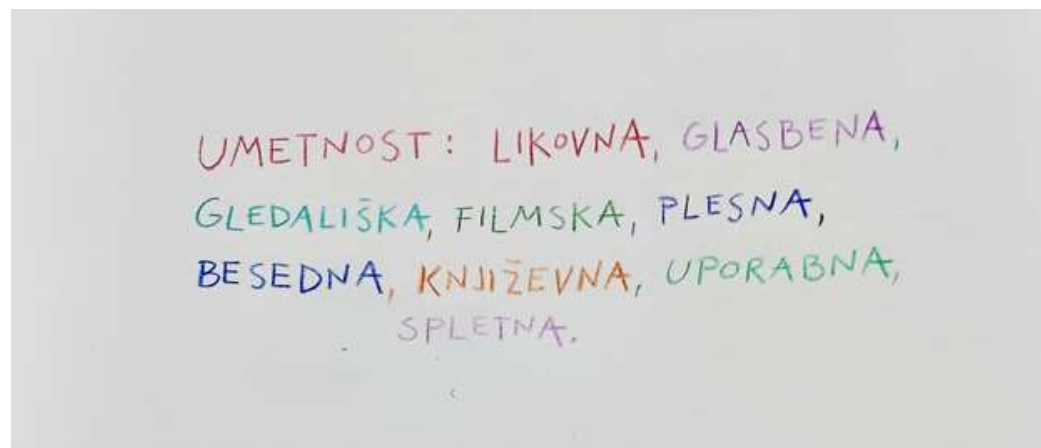 UMETNOST: LIKOVNA, GLASBENA,
GLEDALIŠKA, FILMSKA, PLESNA,
BESEDNA, KNJIŽEVNA, UPORABNA,
SPLETNA.